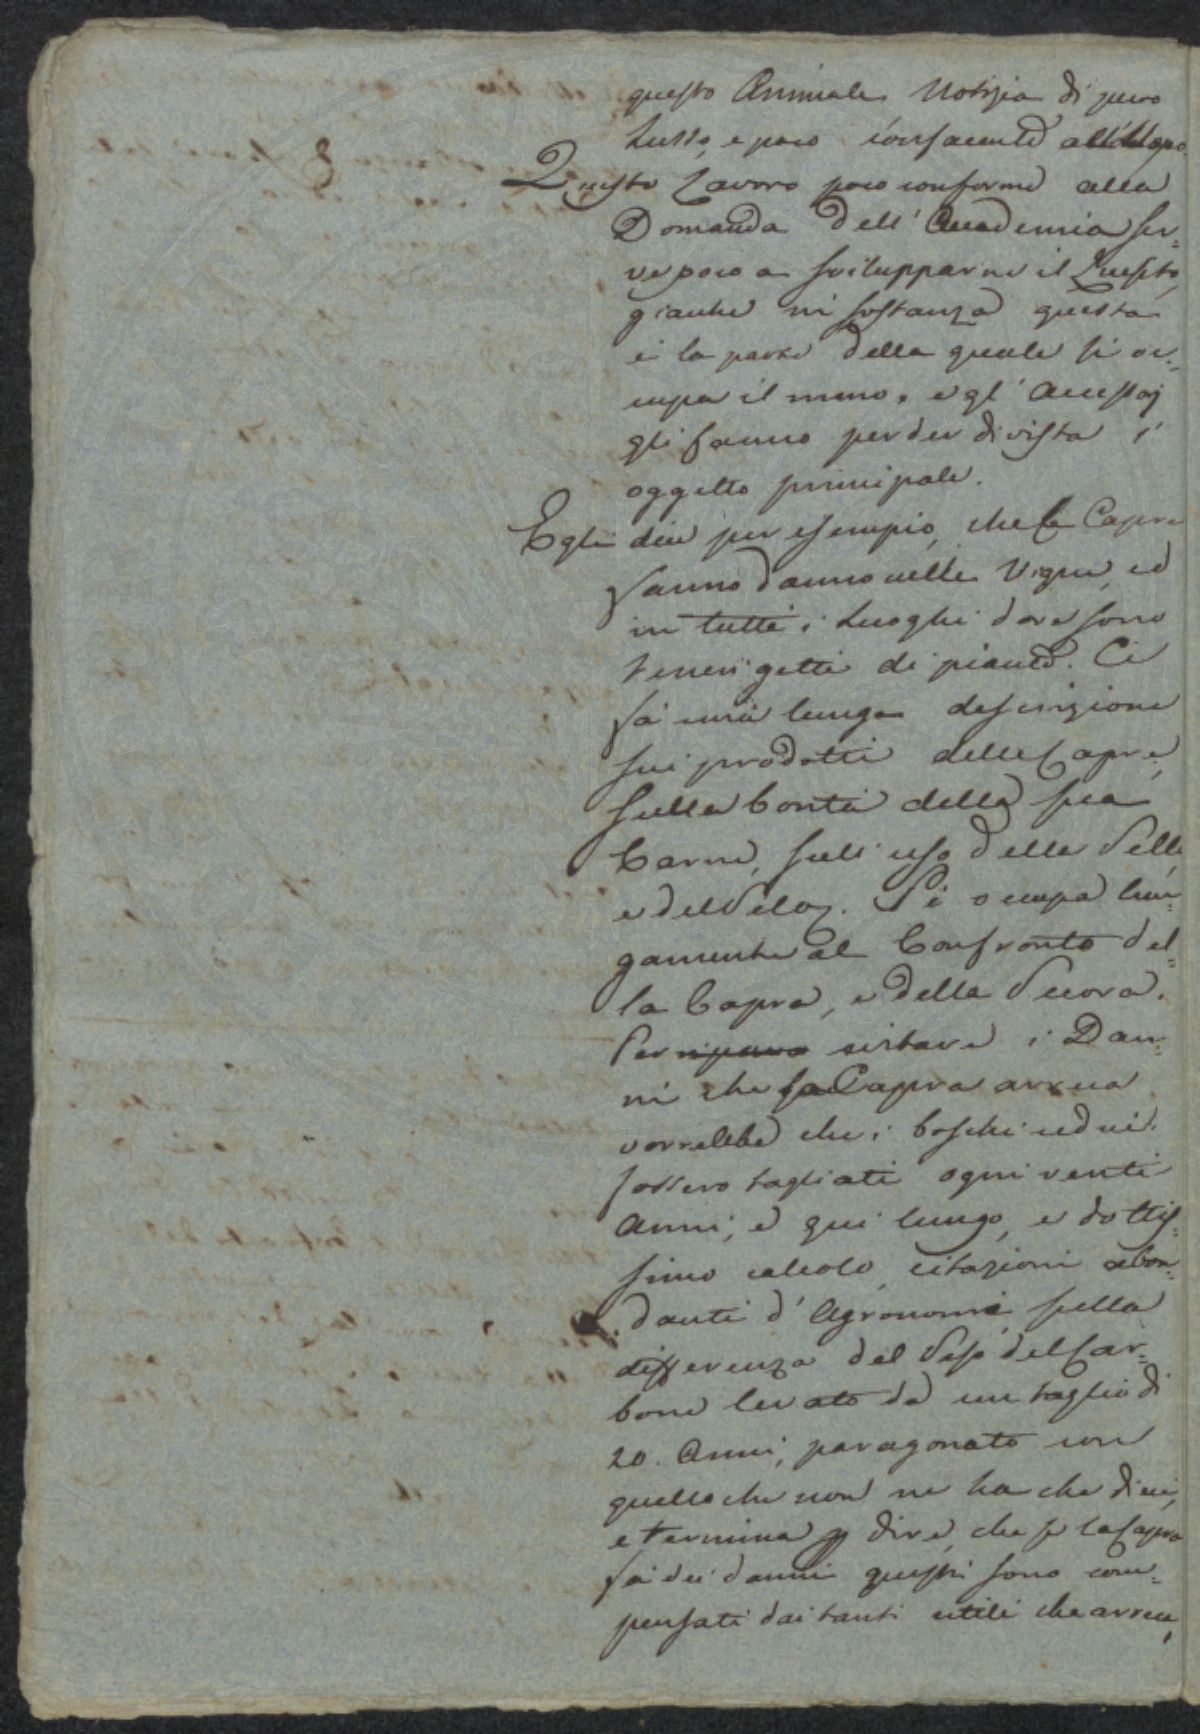 questo Animale Notizia di puro
lusso, e poco consacente all'Uopo.
Questo Lavoro poco conforme alla
Domanda dell' Accademia ser-
ve poco a svilupparne il Quesito,
gianche in sostanza questa
è la parte della quale si oc-
cupa il meno, e gl' Accessorj
gli fanno perder di vista l'
oggetto principale.
Egli dice per esempio, che le Capre
fanno danno nelle Vigne, ed
in tutti i Luoghi dove sono
teneri getti di piante. Ci
fà una lunga descrizione
sui prodotti delle Capre,
sulla bontà della sua
Carne, sull' uso della Pelle
e del Pelo. Si occupa lun-
gamente al Confronto del-
la Capra, e della Pecora.
Per evitare i Dan-
ni che la Capra arreca
vorrebbe che i boschi cedui
fossero tagliati ogni venti
Anni, e qui lungo, e dottis-
simo calcolo, citazioni abon-
danti d' Agronomi sulla
differenza del Peso del Car-
bone levato da un taglio di
20. Anni, paragonato con
quello che non ne ha che dieci,
e termina p dire, che se la Capra
fà dei danni questi sono com-
pensati dai tanti utili che arreca,